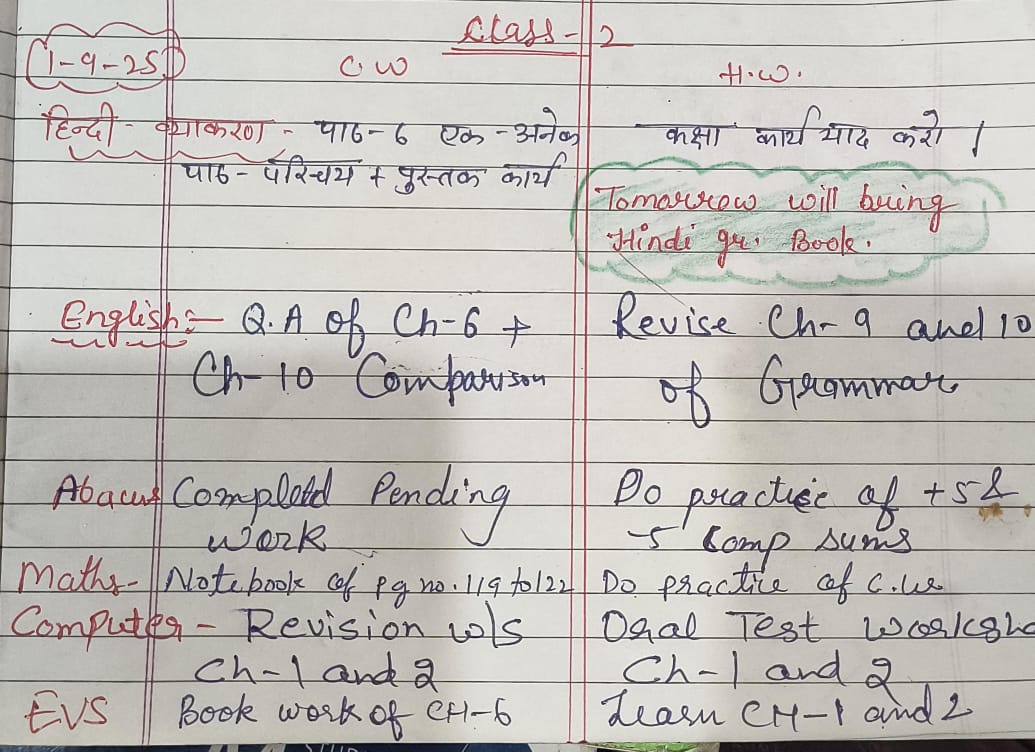 Class - 2
1-9-25
C.W
H.W.
हिन्दी - व्याकरण - पाठ-6 एक-अनेक
कक्षा कार्य याद करो ।
पाठ - परिचय + पुस्तक कार्य
Tomorrow will bring
Hindi gr. Book.
English:- Q.A of Ch-6 +
Revise Ch-9 and 10
Ch-10 Comparison
of Grammar
Abacus Completd Pending
Do practice of +5 &
work
-5 Comp sums
Maths- Notebook of pg no. 119 to 122
Do practice of C.W
Computer - Revision w/s
Oral Test
Ch-1 and 2
Ch-1 and 2
EVS Book work of CH-6
Learn CH-1 and 2